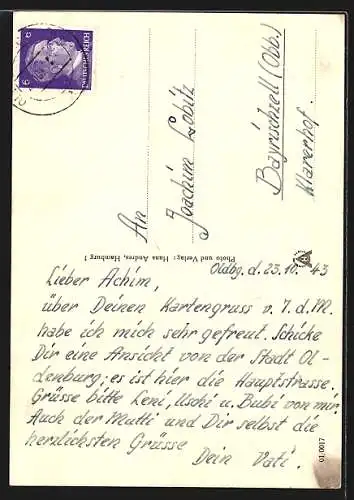 6 DEUTSCHES REICH 6
An
Joachim Lobitz
Bayrischzell (Obb.)
Klarerhof.
Photo und Verlag: Hans Andres, Hamburg 1
Oldbg. d. 23.10. 43
Lieber Achim,
über Deinen Kartengruss v. 7. d. M.
habe ich mich sehr gefreut. Schicke
Dir eine Ansicht von der Stadt Ol-
denburg; es ist hier die Hauptstrasse.
Grüsse bitte Leni, Uschi u. Bubi von mir
Auch der Mutti und Dir selbst die
herzlichsten Grüsse
Dein Vati.
01.0017